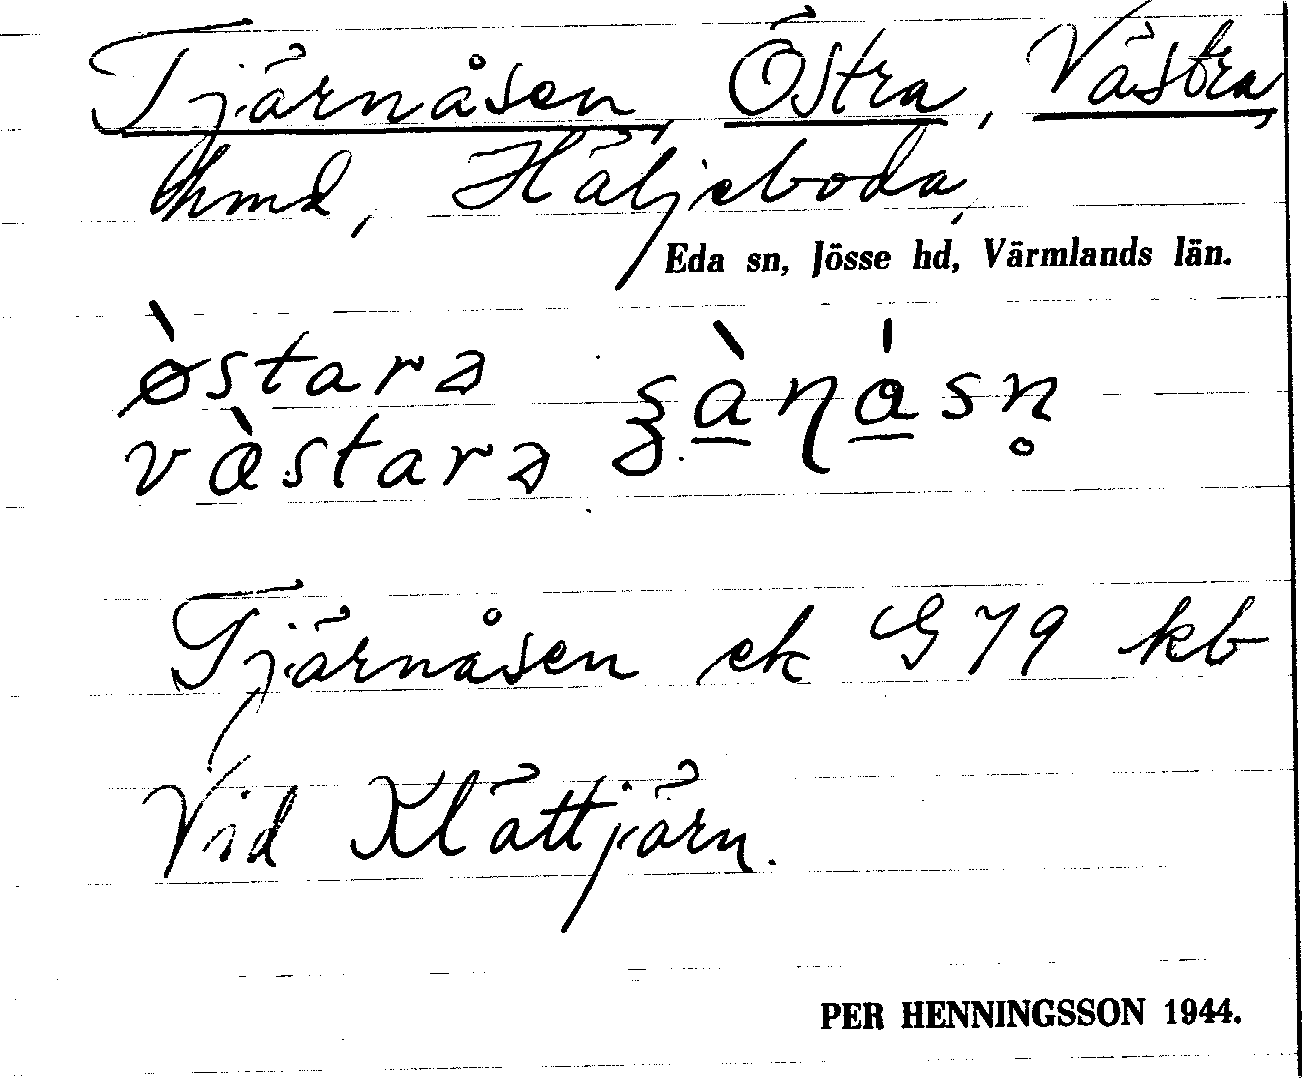 Tjärnåsen, Östra, Västra,
hmd, Häljeboda,
Eda sn, Jösse hd, Värmlands län.
østarə
væstarə
Tjärnåsen ek G 79 kb
Vid Klättjärn.
PER HENNINGSSON 1944.